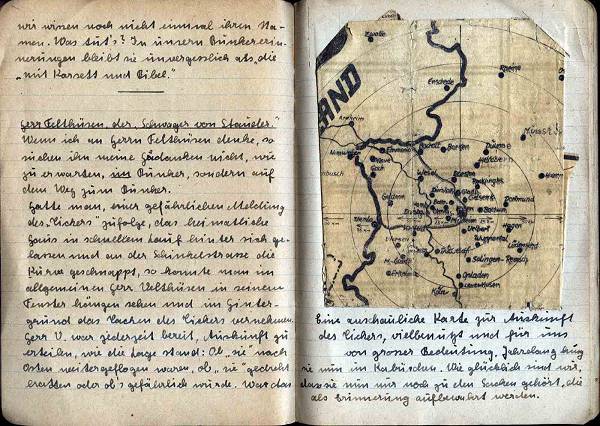 wir wissen noch nicht einmal ihren Na-
men. Was tut's? In unsern Bunkererin-
nerungen bleibt sie unvergesslich als „die
„mit Korsett und Bibel."
Herr Felthüsen, der „Schwager von Stauder."
Wenn ich an Herrn Felthüsen denke, so
suchen ihn meine Gedanken nicht, wie
zu erwarten, im Bunker, sondern auf
dem Weg zum Bunker.
Hatte man, einer gefährlichen Meldung
des „Tickers" zufolge, das heimatliche
Haus in schnellem Lauf hinter sich ge-
lassen und an der Schinkelstrasse die
Kurve geschnappt, so konnte man im
allgemeinen Herr Velthüsen in seinem
Fenster hängen sehen und im Hinter-
grund das Tacken des Tickers vernehmen.
Herr V. war jederzeit bereit, Auskunft zu
erteilen, wie die Lage stand: Ob „sie" nach
Osten weitergeflogen waren, ob „sie" gedreht
hatten oder ob's gefährlich wurde. War das
LAND
Zwolle
Rheine
Enschede
Arnheim
Emmerich
Bocholt
Borken
Dülmen
Münster
Haltern
Kleve
Goch
Wesel
Geldern
Dortmund
Bochum
Venlo
Hagen
Düsseldorf
Wuppertal
Lüdensch.
Solingen
Remsch.
M.-Gladb.
Opladen
Leverkusen
Köln
Eine anschauliche Karte zur Auskunft
des Tickers, vielbenutzt und für uns
von grosser Bedeutung. Jahrelang hing
sie nun im Kabüschen. Wie glücklich sind wir,
dass sie nun nur noch zu den Sachen gehört, die
als Erinnerung aufbewahrt werden.